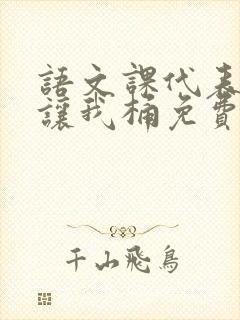 語文課代表
讓我桶免費
千山飛鳥